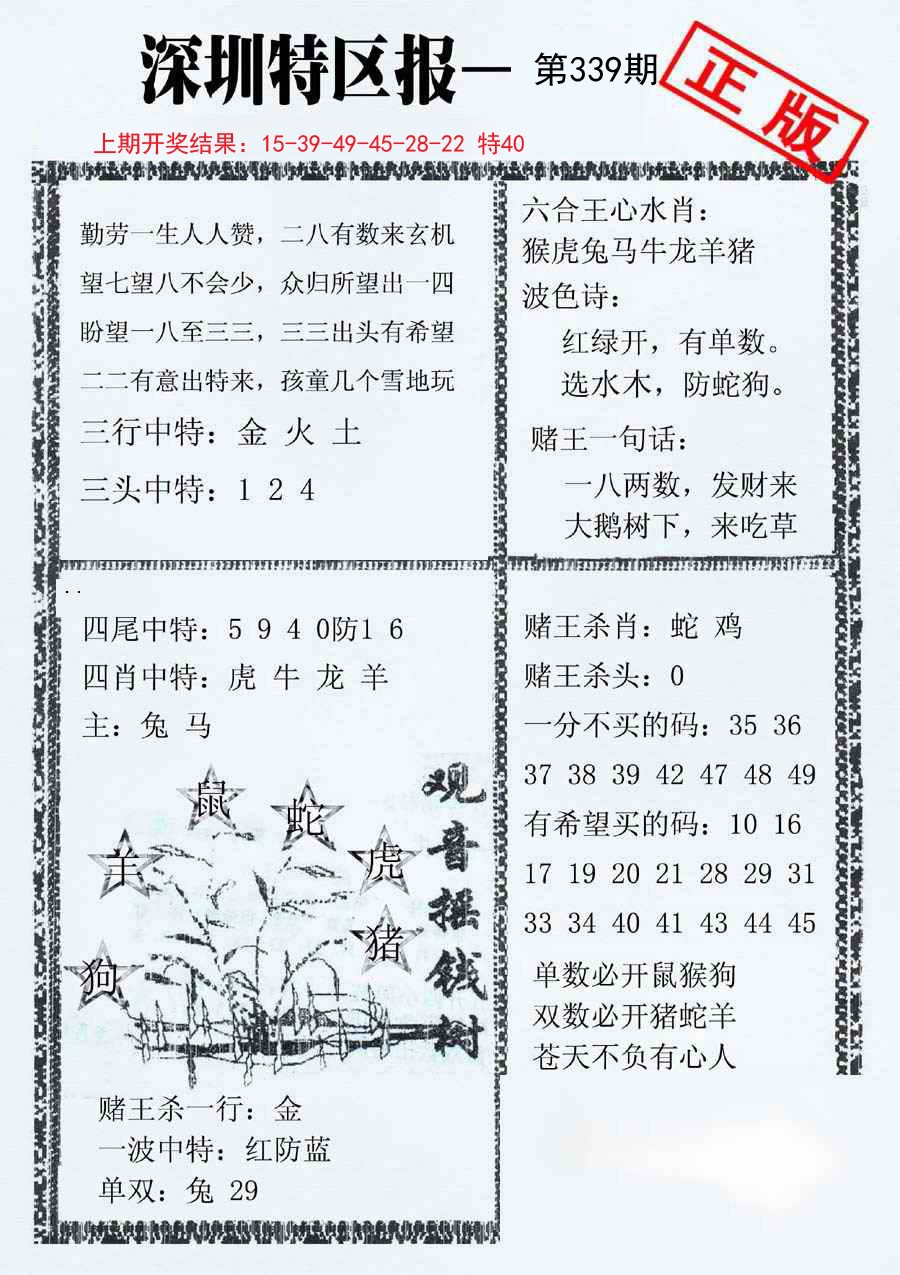 深圳特区报— 第339期
正版
上期开奖结果：15-39-49-45-28-22 特40
勤劳一生人人赞，二八有数来玄机
望七望八不会少，众归所望出一四
盼望一八至三三，三三出头有希望
二二有意出特来，孩童几个雪地玩
三行中特：金 火 土
三头中特：1 2 4
六合王心水肖：
猴虎兔马牛龙羊猪
波色诗：
红绿开，有单数。
选水木，防蛇狗。
赌王一句话：
一八两数，发财来
大鹅树下，来吃草
四尾中特：5 9 4 0防1 6
四肖中特：虎 牛 龙 羊
主：兔 马
鼠
蛇
羊
虎
猪
狗
观音摇钱树
赌王杀一行：金
一波中特：红防蓝
单双：兔 29
赌王杀肖：蛇 鸡
赌王杀头：0
一分不买的码：35 36
37 38 39 42 47 48 49
有希望买的码：10 16
17 19 20 21 28 29 31
33 34 40 41 43 44 45
单数必开鼠猴狗
双数必开猪蛇羊
苍天不负有心人